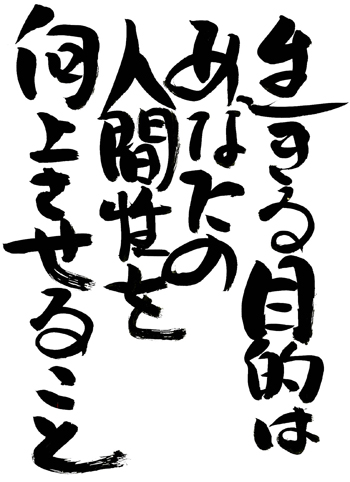 生きる目的は
あなたの
人間性を
向上させること